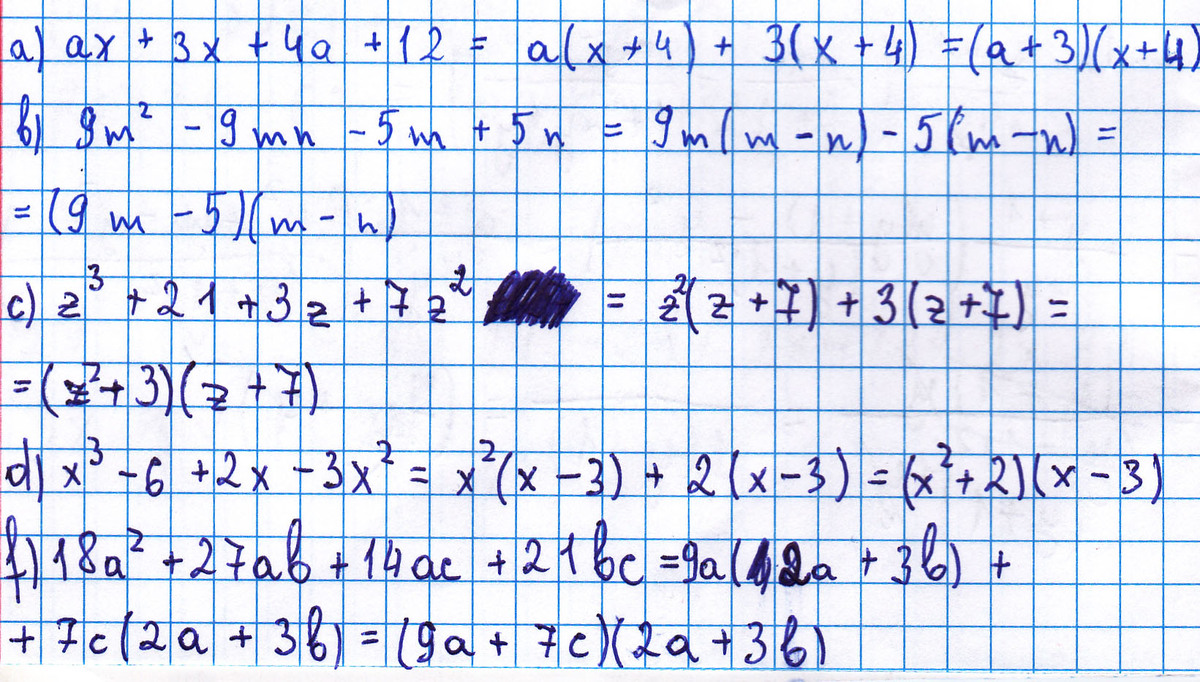 a) ax + 3x + 4a + 12 = a(x + 4) + 3(x + 4) = (a + 3)(x + 4)
b) 9m² - 9mn - 5m + 5n = 9m(m - n) - 5(m - n) =
= (9m - 5)(m - n)
c) z³ + 21 + 3z + 7z² = z²(z + 7) + 3(z + 7) =
= (z² + 3)(z + 7)
d) x³ - 6 + 2x - 3x² = x²(x - 3) + 2(x - 3) = (x² + 2)(x - 3)
f) 18a² + 27ab + 14ac + 21bc = 9a(2a + 3b) +
+ 7c(2a + 3b) = (9a + 7c)(2a + 3b)